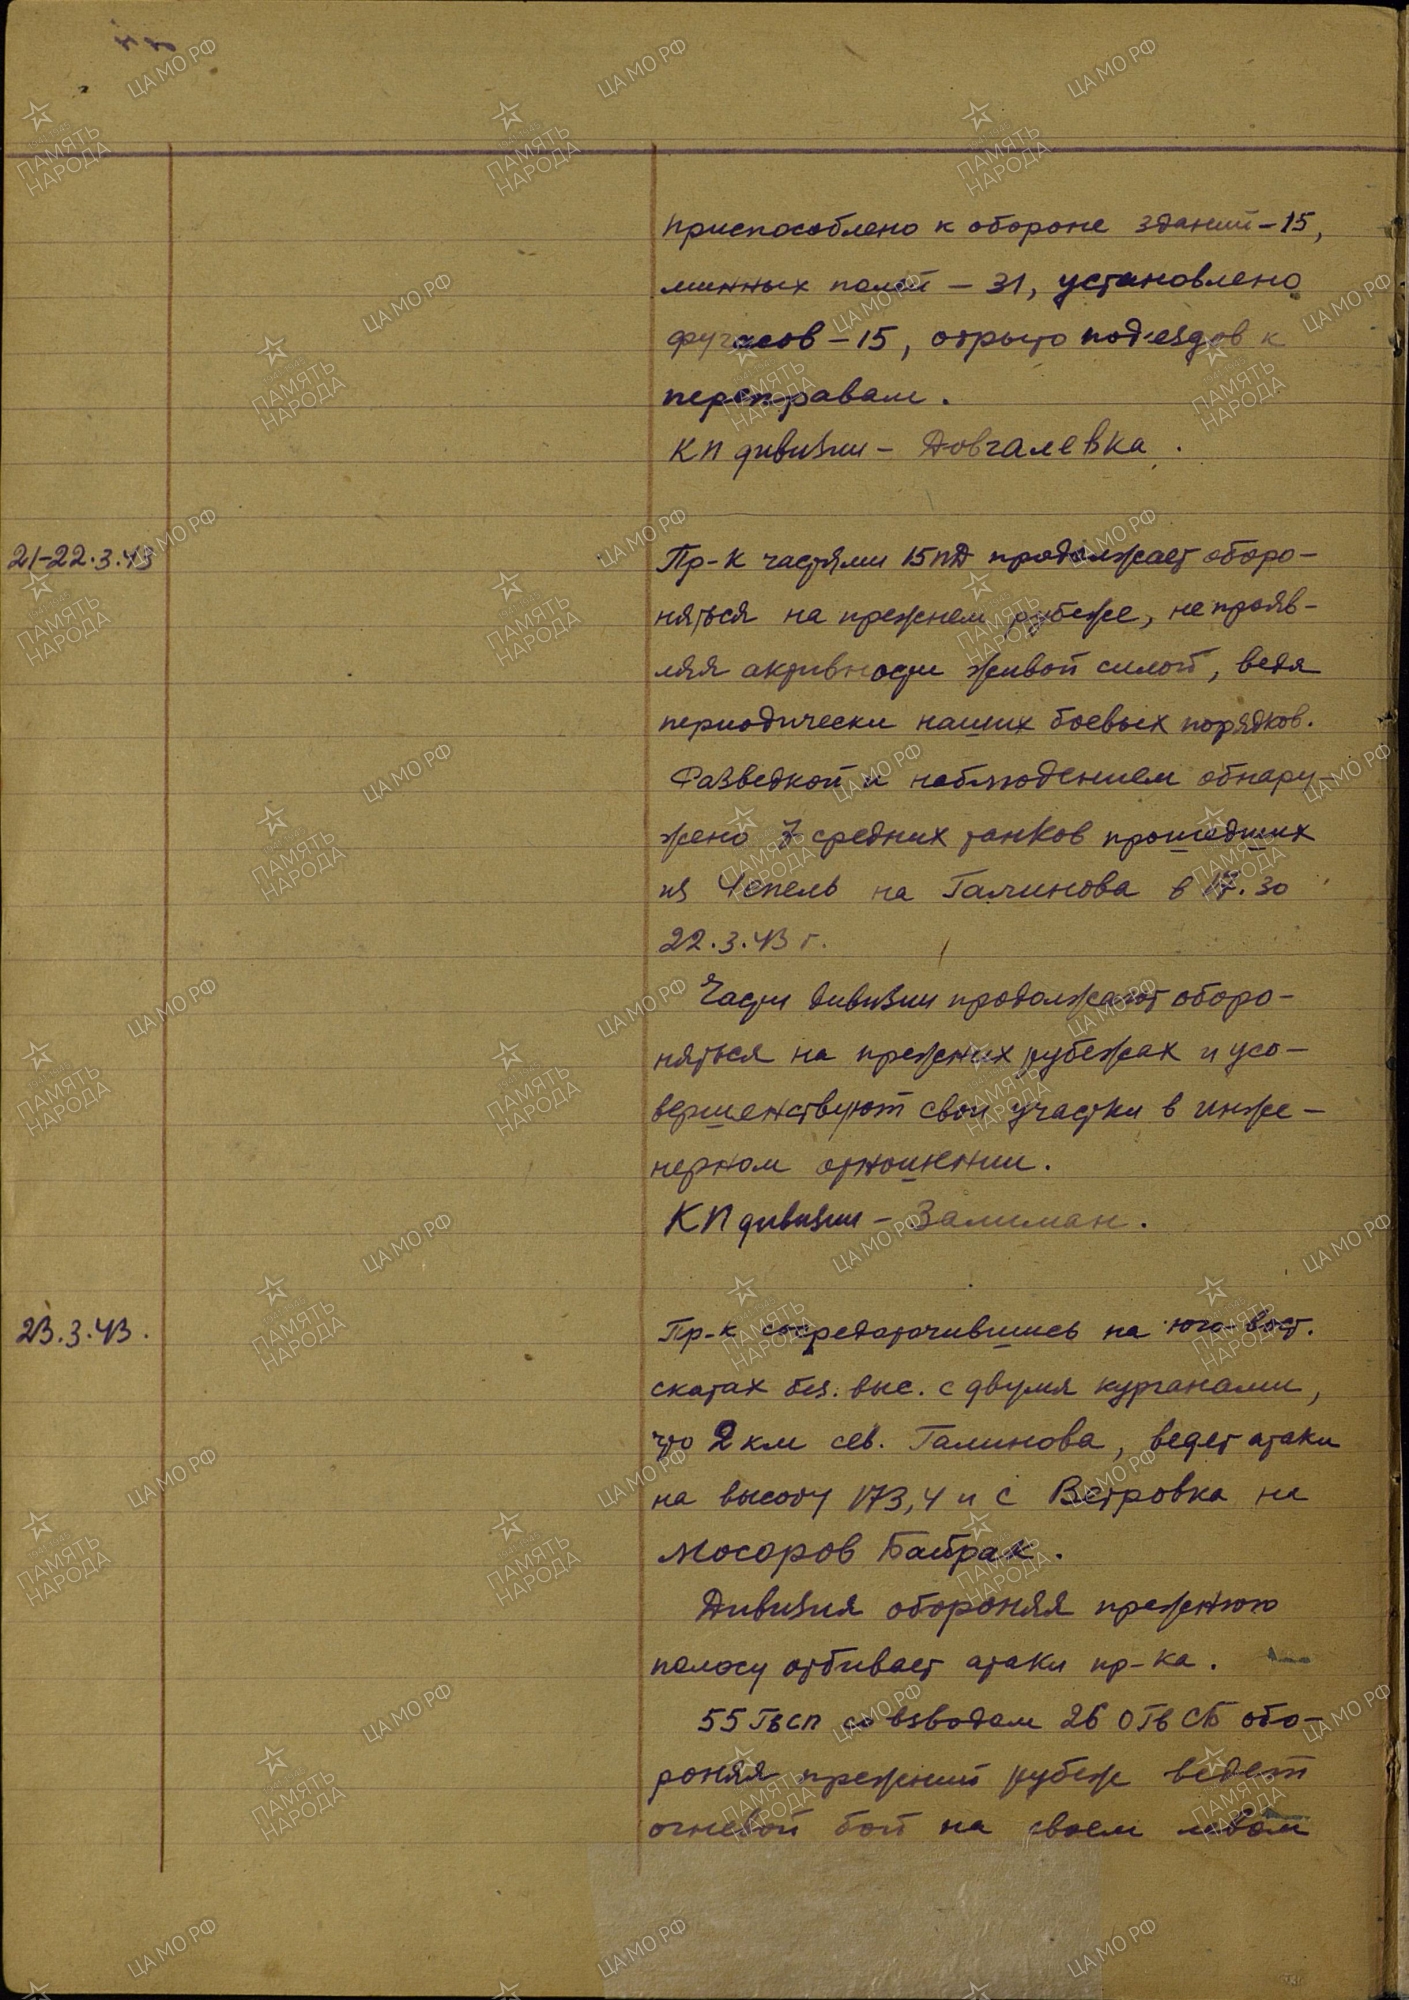 приспособлено к обороне зданий – 15,
минных полей – 31, установлено
фугасов – 15, отрыто подъездов к
переправам.
КП дивизии – Довгалевка.
21-22.3.43
Пр-к частями 15ПД продолжает оборо-
няться на прежнем рубеже, не прояв-
ляя активности живой силой, ведя
периодически наших боевых порядков.
Разведкой и наблюдением обнару-
жено 7 средних танков прошедших
из Чепель на Галинова в 17.30
22.3.43 г.
Части дивизии продолжают оборо-
няться на прежних рубежах и усо-
вершенствуют свои участки в инже-
нерном отношении.
КП дивизии – Залиман.
23.3.43.
Пр-к сосредоточившись на юго-вост.
скатах без. выс. с двумя курганами,
что 2 км сев. Галинова, ведет атаки
на высоту 173,4 и с Ветровка на
Мосоров Байрак.
Дивизия обороняя прежнюю
полосу отбивает атаки пр-ка.
55 Гв СП со взводом 26 ОГв СБ обо-
роняя прежний рубеж ведет
огневой бой на своем левом
ПАМЯТЬ НАРОДА
ЦА МО РФ